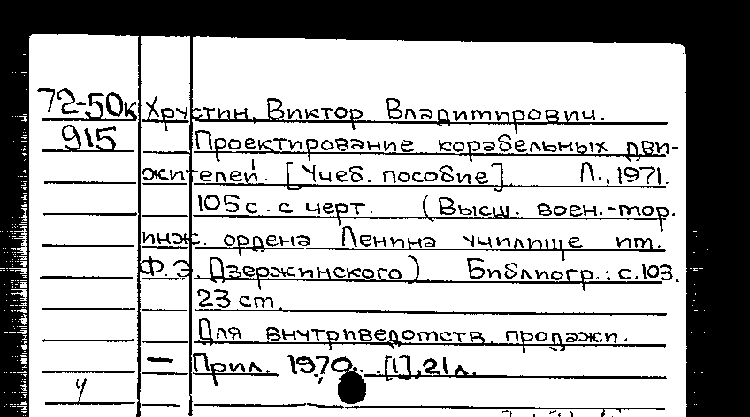 72-50к Хрустин, Виктор Владимирович.
915 Проектирование корабельных дви-
жителей. [Учеб. пособие]. Л., 1971.
105 с. с черт. (Высш. воен.-мор.
инж. ордена Ленина училище им.
Ф. Э. Дзержинского) Библиогр.: с. 103.
23 см.
Для внутриведомств. продажи.
— Прил. 1970. [1], 21 л.